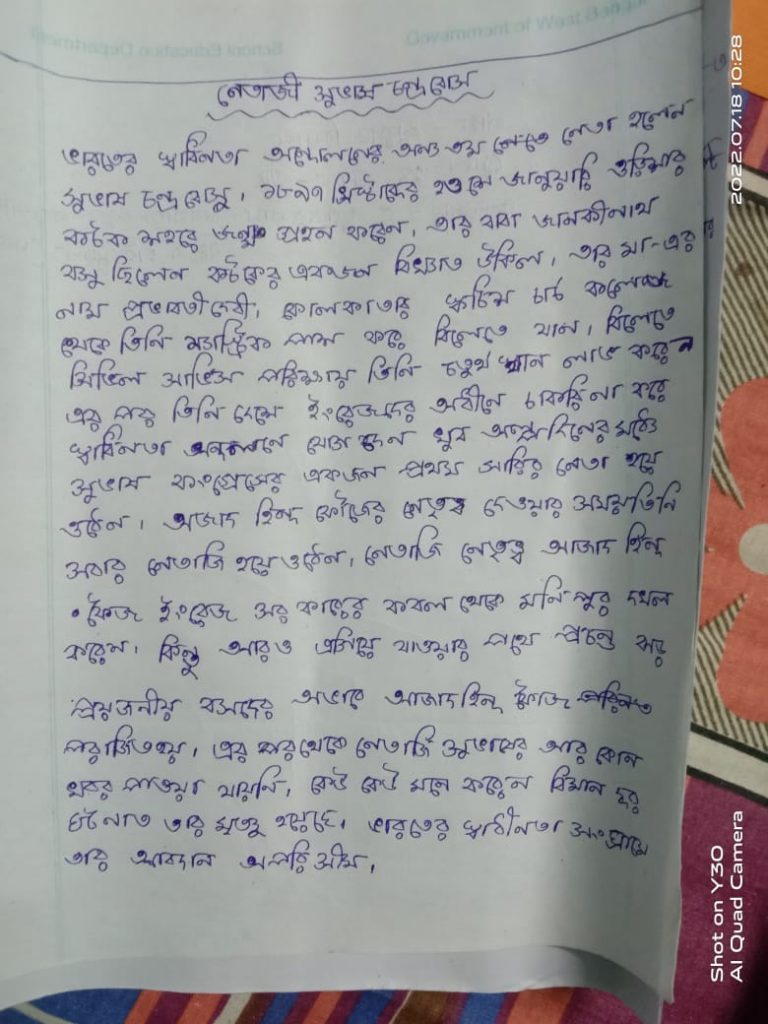 নেতাজী সুভাষ চন্দ্র বোস
ভারতের স্বাধিনতা অন্দোলনের অন্য তম শ্রেষ্ঠ নেতা হলেন
সুভাষ চন্দ্র বোসু। ১৮৯৭ খ্রিস্টাব্দের ২৩ শে জানুয়ারি ওড়িষার
কটক শহরে জন্ম গ্রহন করেন। তার বাবা জানকীনাথ
বসু ছিলেন কটকের একজন বিখ্যাত উকিল। তার মা-এর
নাম প্রভাবতী দেবী। কোলকাতার স্কটিস চার্চ কলেজ
থেকে তিনি ম্যাট্রিক পাস করে বিলেতে যান। বিলেতে
সিভিল সার্ভিস পরিক্ষায় তিনি চতুর্থ স্থান লাভ করেন
এর পর তিনি দেশে ইংরেজদের অধীনে চাকরি না করে
স্বাধিনতা অন্দলনে যোগ দেন খুব অল্প দিনের মধ্যে
সুভাষ কংগ্রেসের একজন প্রথম সারির নেতা হয়ে
ওঠেন। আজাদ হিন্দ ফৌজের নেতৃত্ব দেওয়ার সময় তিনি
সবার নেতাজি হয়ে ওঠেন। নেতাজি নেতৃত্ব আজাদ হিন্দ
ফৌজ ইংরেজ সর কারের কবল থেকে মনিপুর দখল
করেন। কিন্তু আরও এগিয়ে যাওয়ার পথে প্রচন্ড ঝড়
প্রয়জনীয় রসদের অভাবে আজাদ হিন্দ ফৌজ
পরাজিত হয়। এর পর থেকে নেতাজি সুভাষের আর কোন
খবর পাওয়া যায়নি। কেউ কেউ মনে করেন বিমান দুর
ঘটনাত তার মৃত্যু হয়েছে। ভারতের স্বাধীনতা সংগ্রামে
তার অবদান অপরিসীম।
2022.07.18 10:28
Shot on Y30
AI Quad Camera